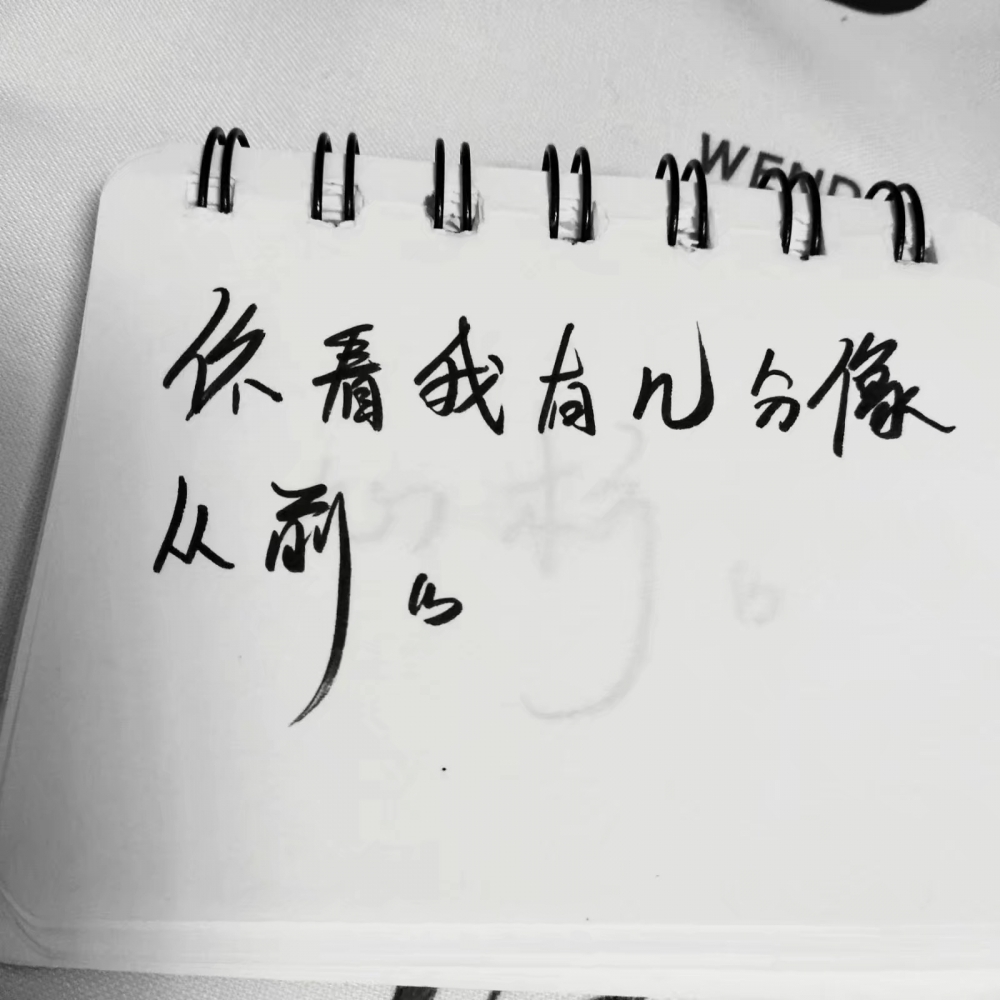 WEND
你看我有几分像
从前